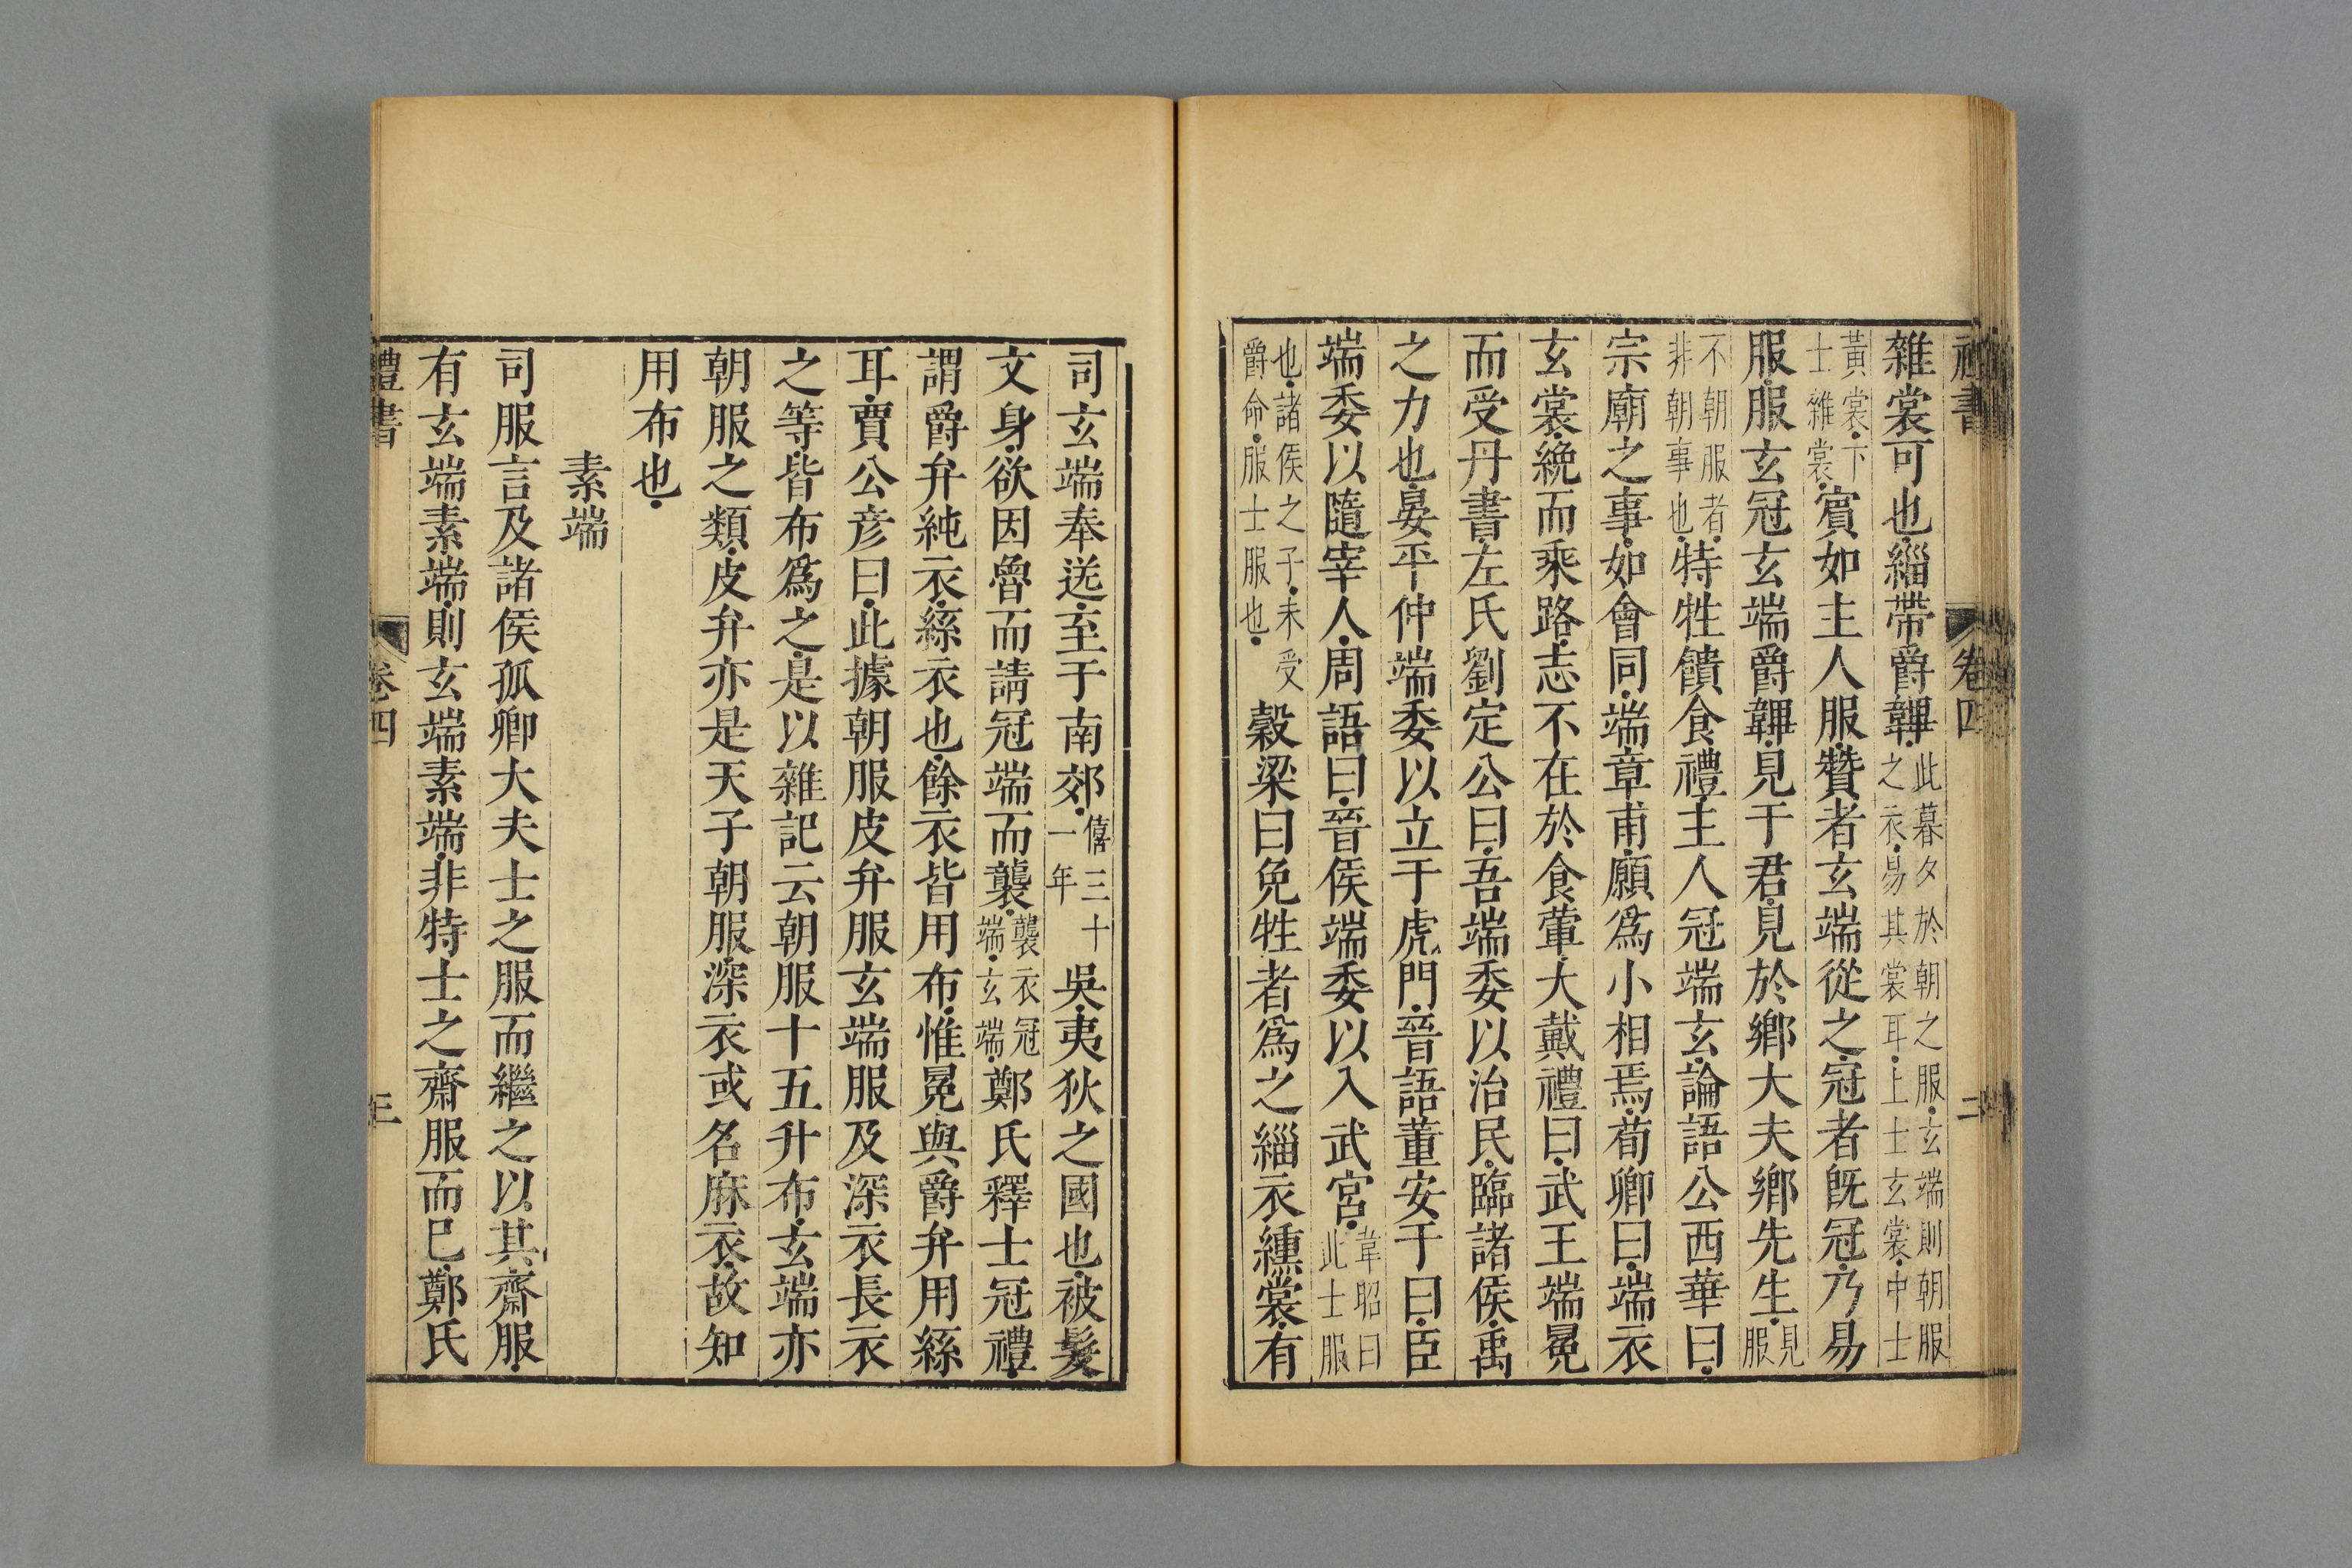 禮書
卷四
二
雜裳可也緇帶爵韠此暮夕於朝之服玄端則朝服之衣易其裳耳上士玄裳中士
黃裳下士雜裳賔如主人服贊者玄端從之冠者旣冠乃易
服服玄冠玄端爵韠見于君見於鄉大夫鄉先生見服
不朝服者非朝事也特牲饋食禮主人冠端玄論語公西華曰
宗廟之事如會同端章甫願爲小相焉荀卿曰端衣
玄裳絻而乘路志不在於食葷大戴禮曰武王端冕
而受丹書左氏劉定公曰吾端委以治民臨諸侯禹
之力也晏平仲端委以立于虎門晉語董安于曰臣
端委以隨宰人周語曰晉侯端委以入武宮韋昭曰此士服
也諸侯之子未受爵命服士服也穀梁曰免牲者爲之緇衣纁裳有
司玄端奉送至于南郊僖三十一年吳夷狄之國也被髮
文身欲因魯而請冠端而襲襲衣冠端玄端鄭氏釋士冠禮
謂爵弁純衣絲衣也餘衣皆用布惟冕與爵弁用絲
耳賈公彦曰此據朝服皮弁服玄端服及深衣長衣
之等皆布爲之是以雜記云朝服十五升布玄端亦
朝服之類皮弁亦是天子朝服深衣或名麻衣故知
用布也
素端
司服言及諸侯孤卿大夫士之服而繼之以其齋服
有玄端素端則玄端素端非特士之齋服而巳鄭氏
禮書
卷四
三